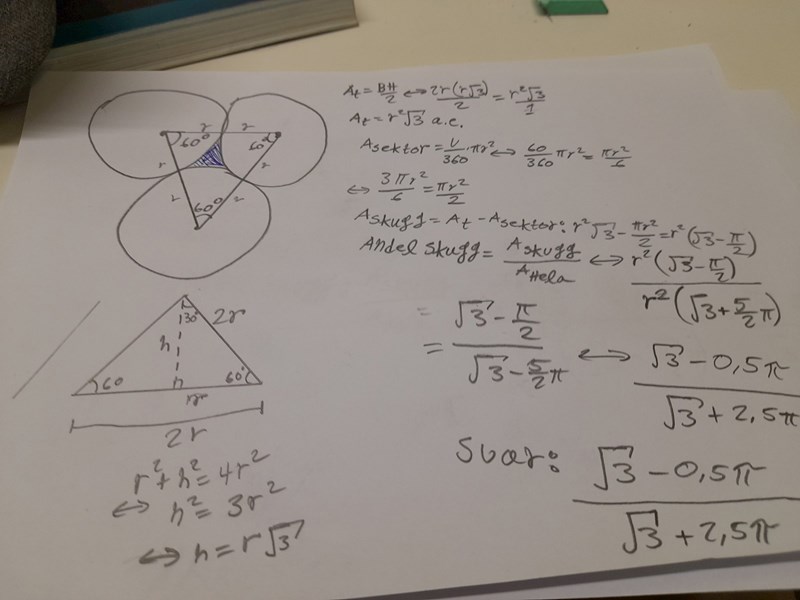 r r
60° 60°
r r
r r
60°
At = BH/2 ⇔ 2r(r√3)/2 = r²√3/1
At = r²√3 a.e.
Asektor = v/360 · πr² ⇔ 60/360 πr² = πr²/6
⇔ 3πr²/6 = πr²/2
Askugg = At - Asektor: r²√3 - πr²/2 = r²(√3 - π/2)
Andel skugg = Askugg/AHela ⇔ r²(√3 - π/2)/r²(√3 + 5/2 π)
= √3 - π/2 / √3 - 5/2 π ⇔ √3 - 0,5π / √3 + 2,5π
Svar: √3 - 0,5π / √3 + 2,5π
30° 2r
h
60 60°
2r
r² + h² = 4r²
⇔ h² = 3r²
⇔ h = r√3